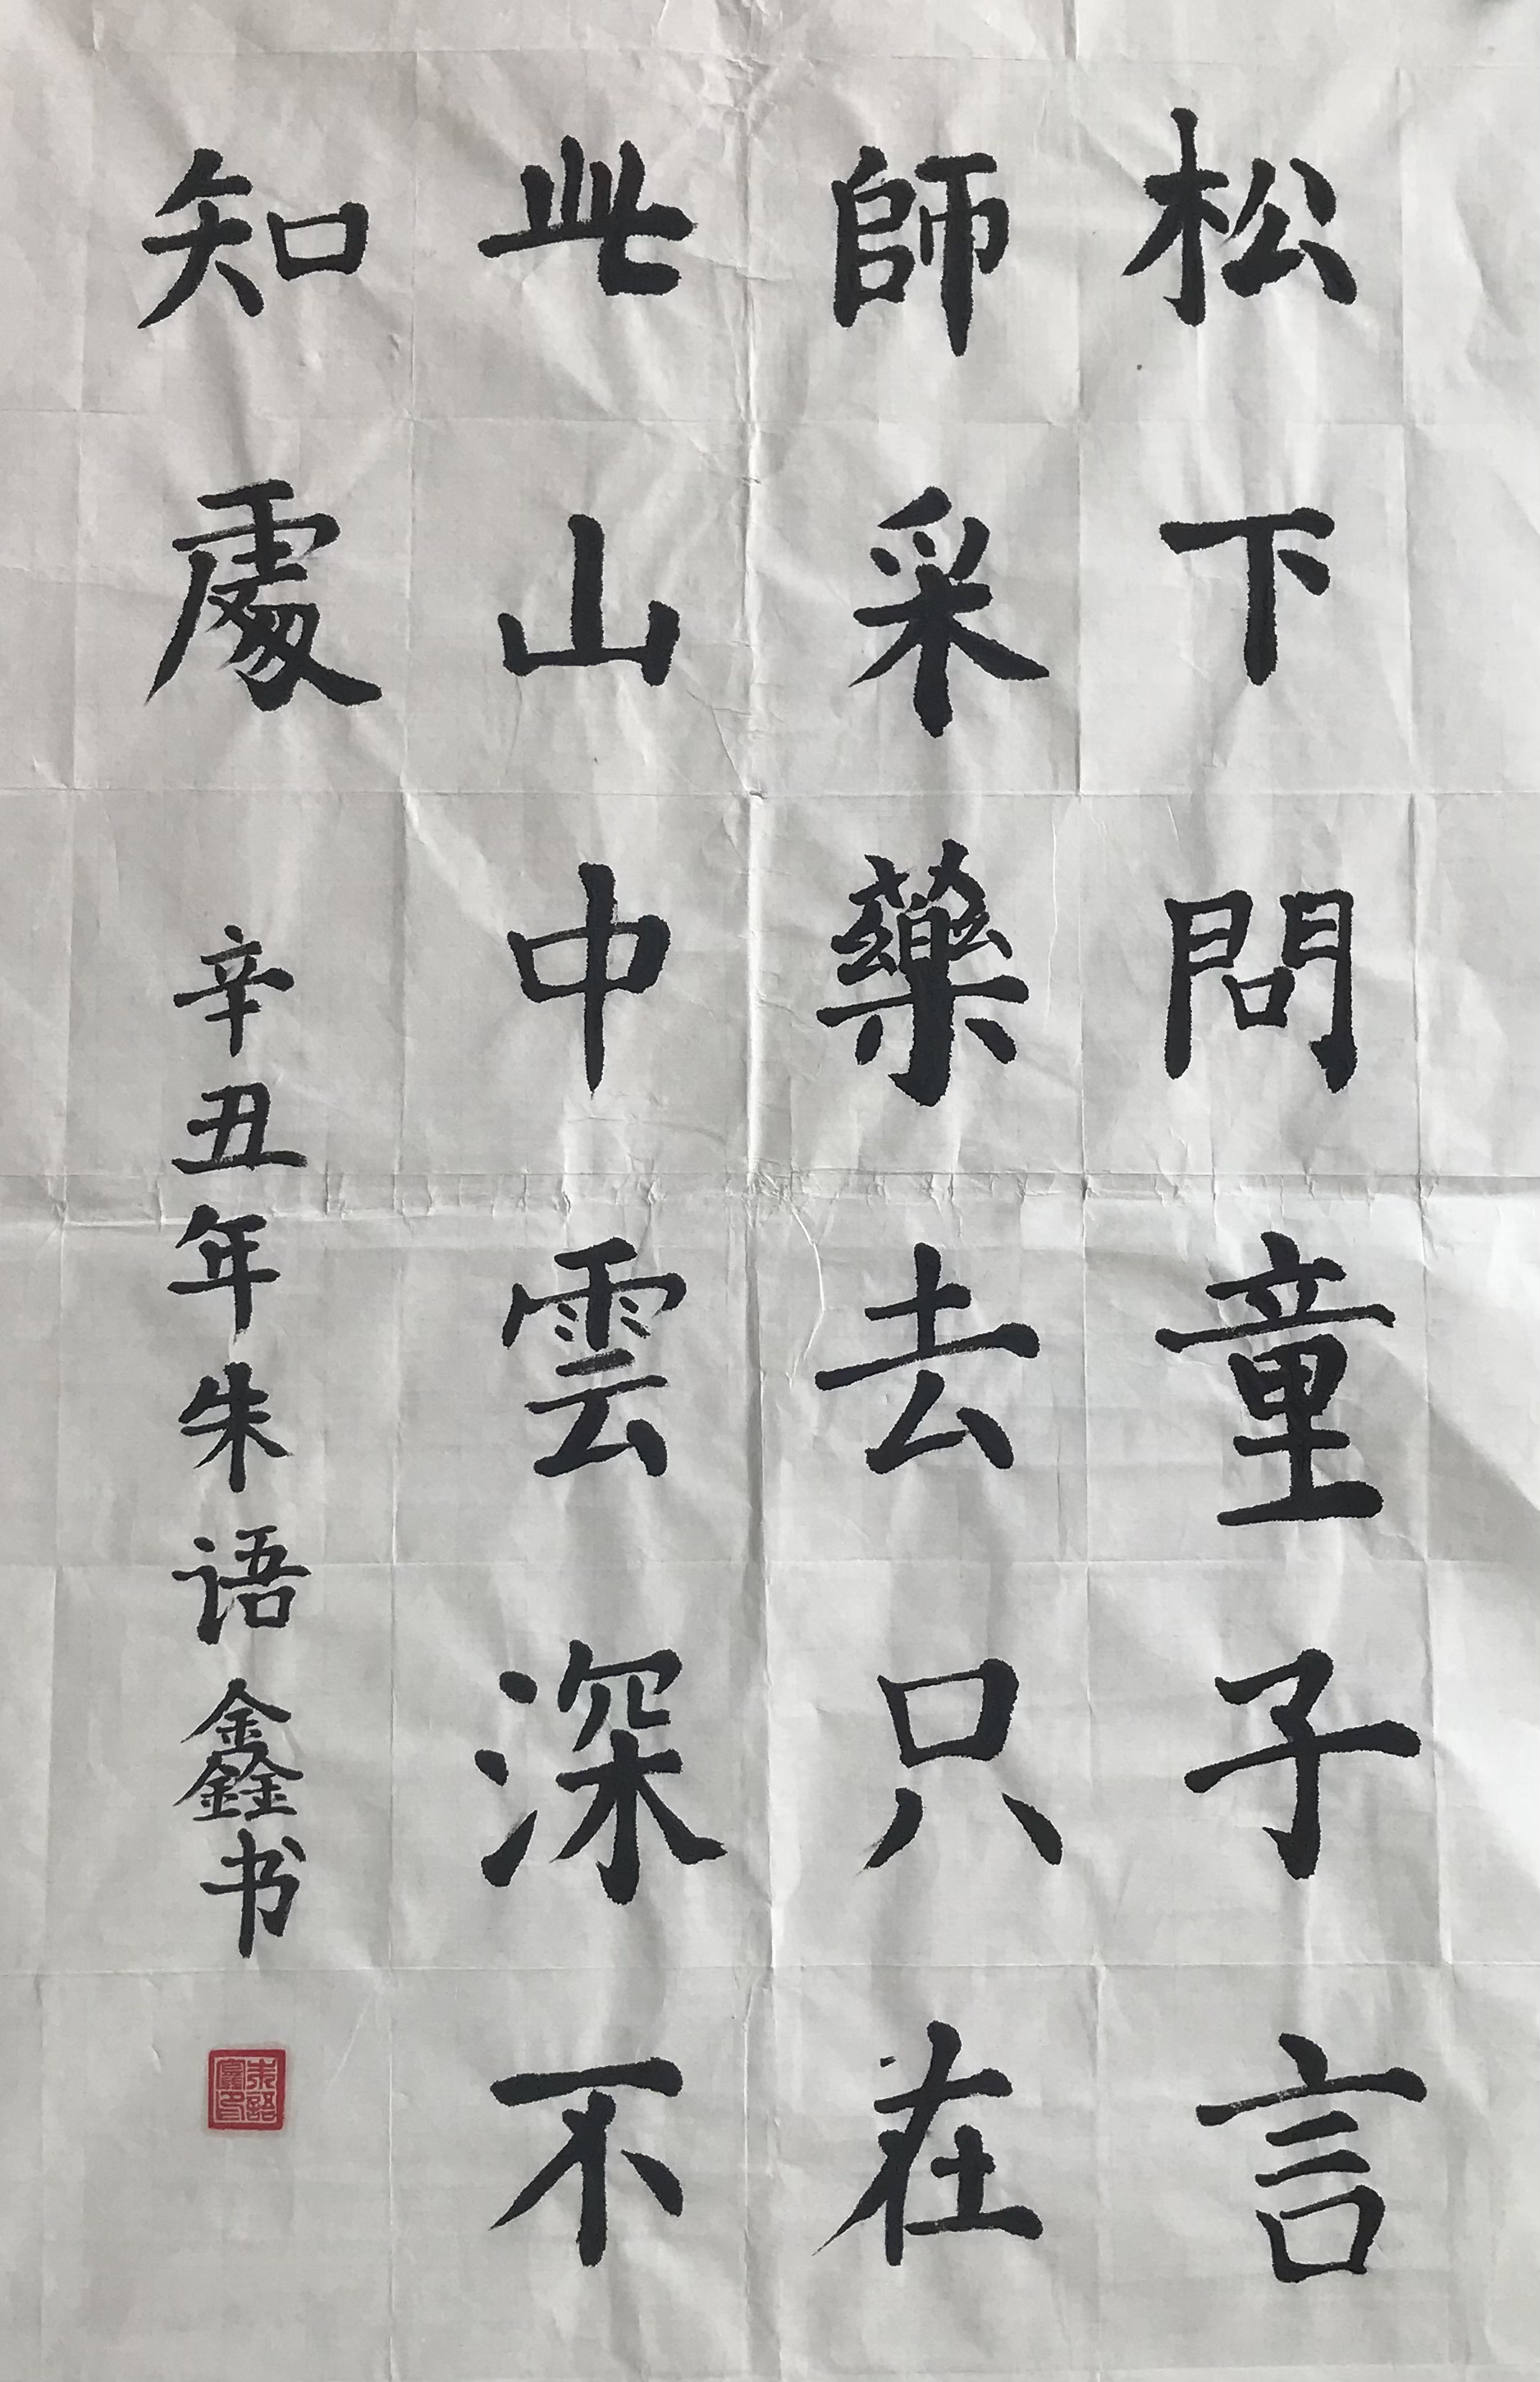 松下問童子言
師采藥去只在
此山中雲深不
知處
辛丑年朱语鑫书
朱語鑫印